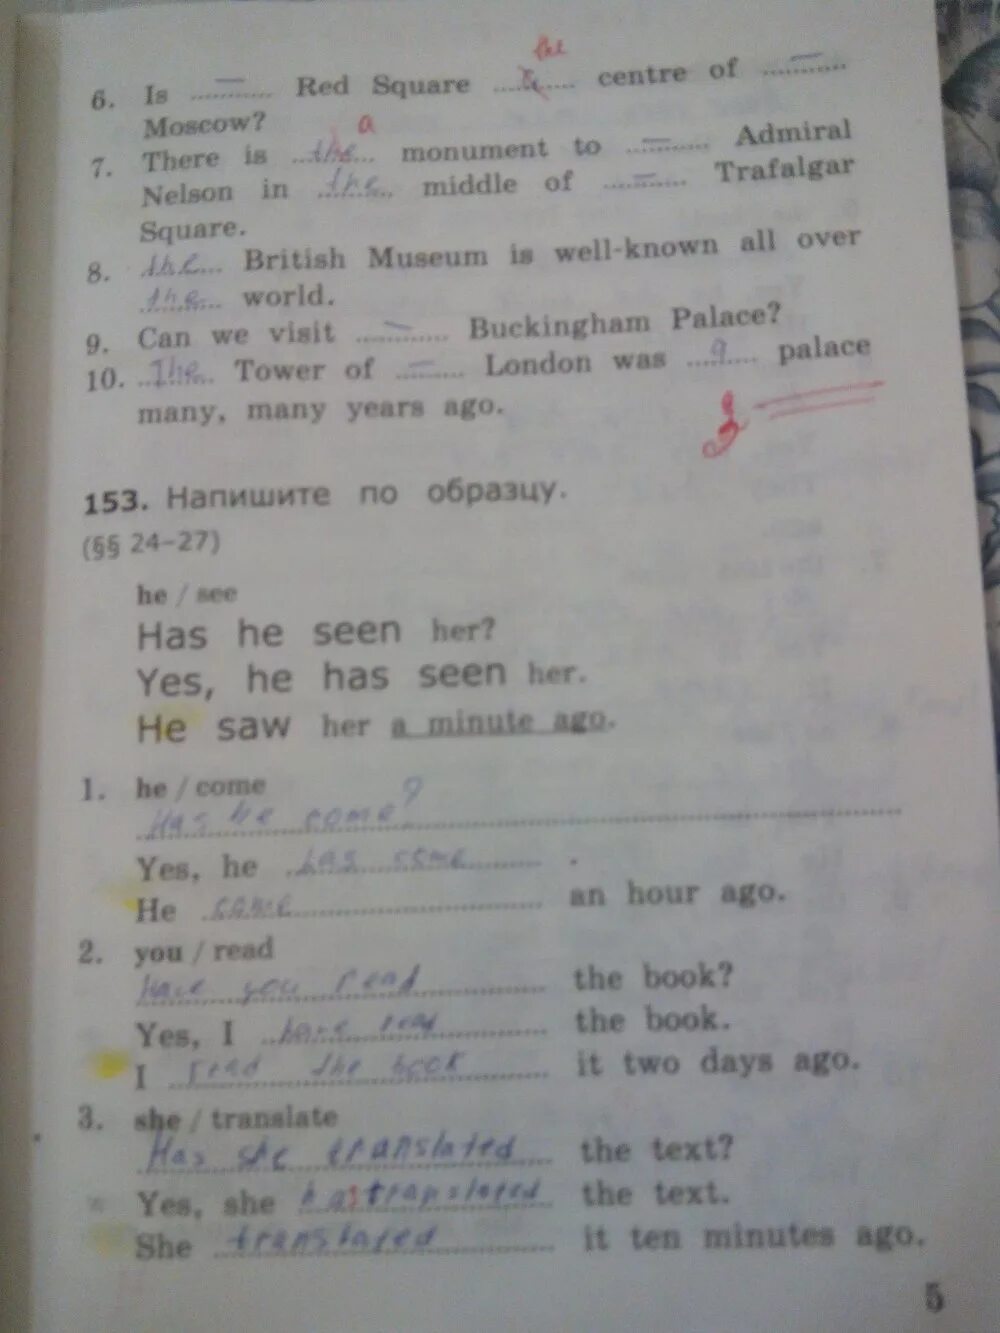 the
6. Is ...—... Red Square ...a... centre of ...—...
Moscow? a
7. There is ...the... monument to ...—... Admiral
Nelson in ...the... middle of ...—... Trafalgar
Square.
8. ...the... British Museum is well-known all over
...the... world.
9. Can we visit ...—... Buckingham Palace?
10. ...The... Tower of ...—... London was ...a... palace
many, many years ago.
3
153. Напишите по образцу.
(§§ 24–27)
he / see
Has he seen her?
Yes, he has seen her.
He saw her a minute ago.
1. he / come
Has he come?
Yes, he has come.
He came an hour ago.
2. you / read
Have you read the book?
Yes, I have read the book.
I read the book it two days ago.
3. she / translate
Has she translated the text?
Yes, she has translated the text.
She translated it ten minutes ago.
5